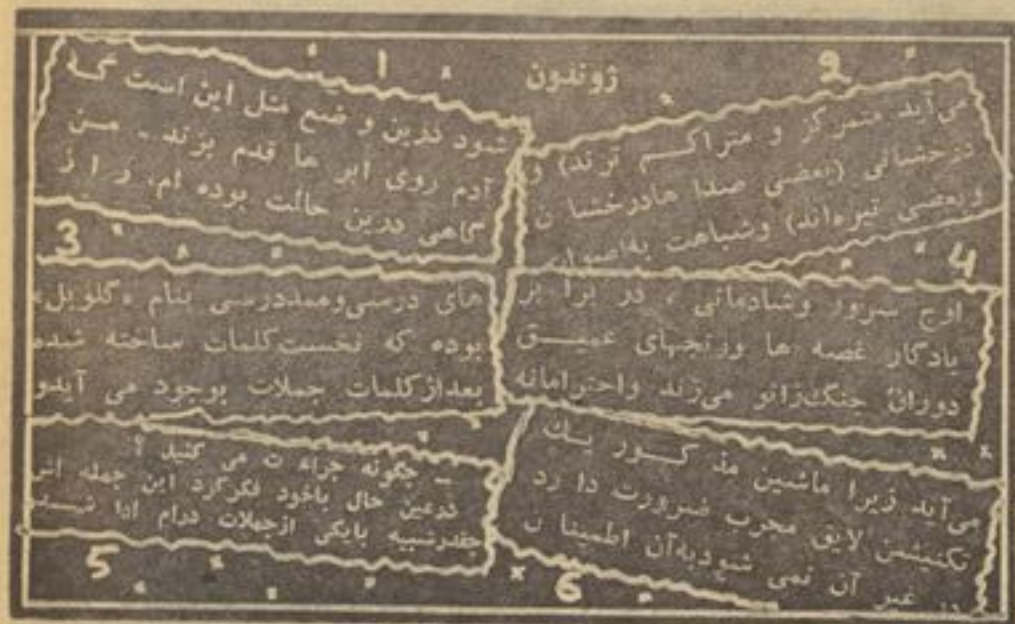 ژوندون
1
شود درین و ضع مثل این است که
آدم روی ابر ها قدم بزند - من
گاهی درین حالت بوده ام، زیرا از
2
می‌آید متمرکز و متراکم ترند) و
درخشانی (بعضی صدا هادرخشا ن
وبعضی تیره‌اند) وشباهت به
3
های درسی‌وممددرسی بنام «کلوبل»
بوده که نخست‌کلمات ساخته شده
بعدازکلمات جملات بوجود می آیدو
4
اوج سرور وشادمانی ، در برا بر
یادگار غصه ها ورنجهای عمیق
دوران جنگ‌زانو می‌زند واحترامانه
5
ـ چگونه جراء ت می کنید ؟
درعین حال باخود فکرکرد این جمله اش
چقدرشبیه بایکی ازجملات درام ادا
6
می‌آید زیرا ماشین مذ کور یک
تکنیشن لایق مجرب ضرورت دا رد
در غیر آن نمی شودبه‌آن اطمینا ن